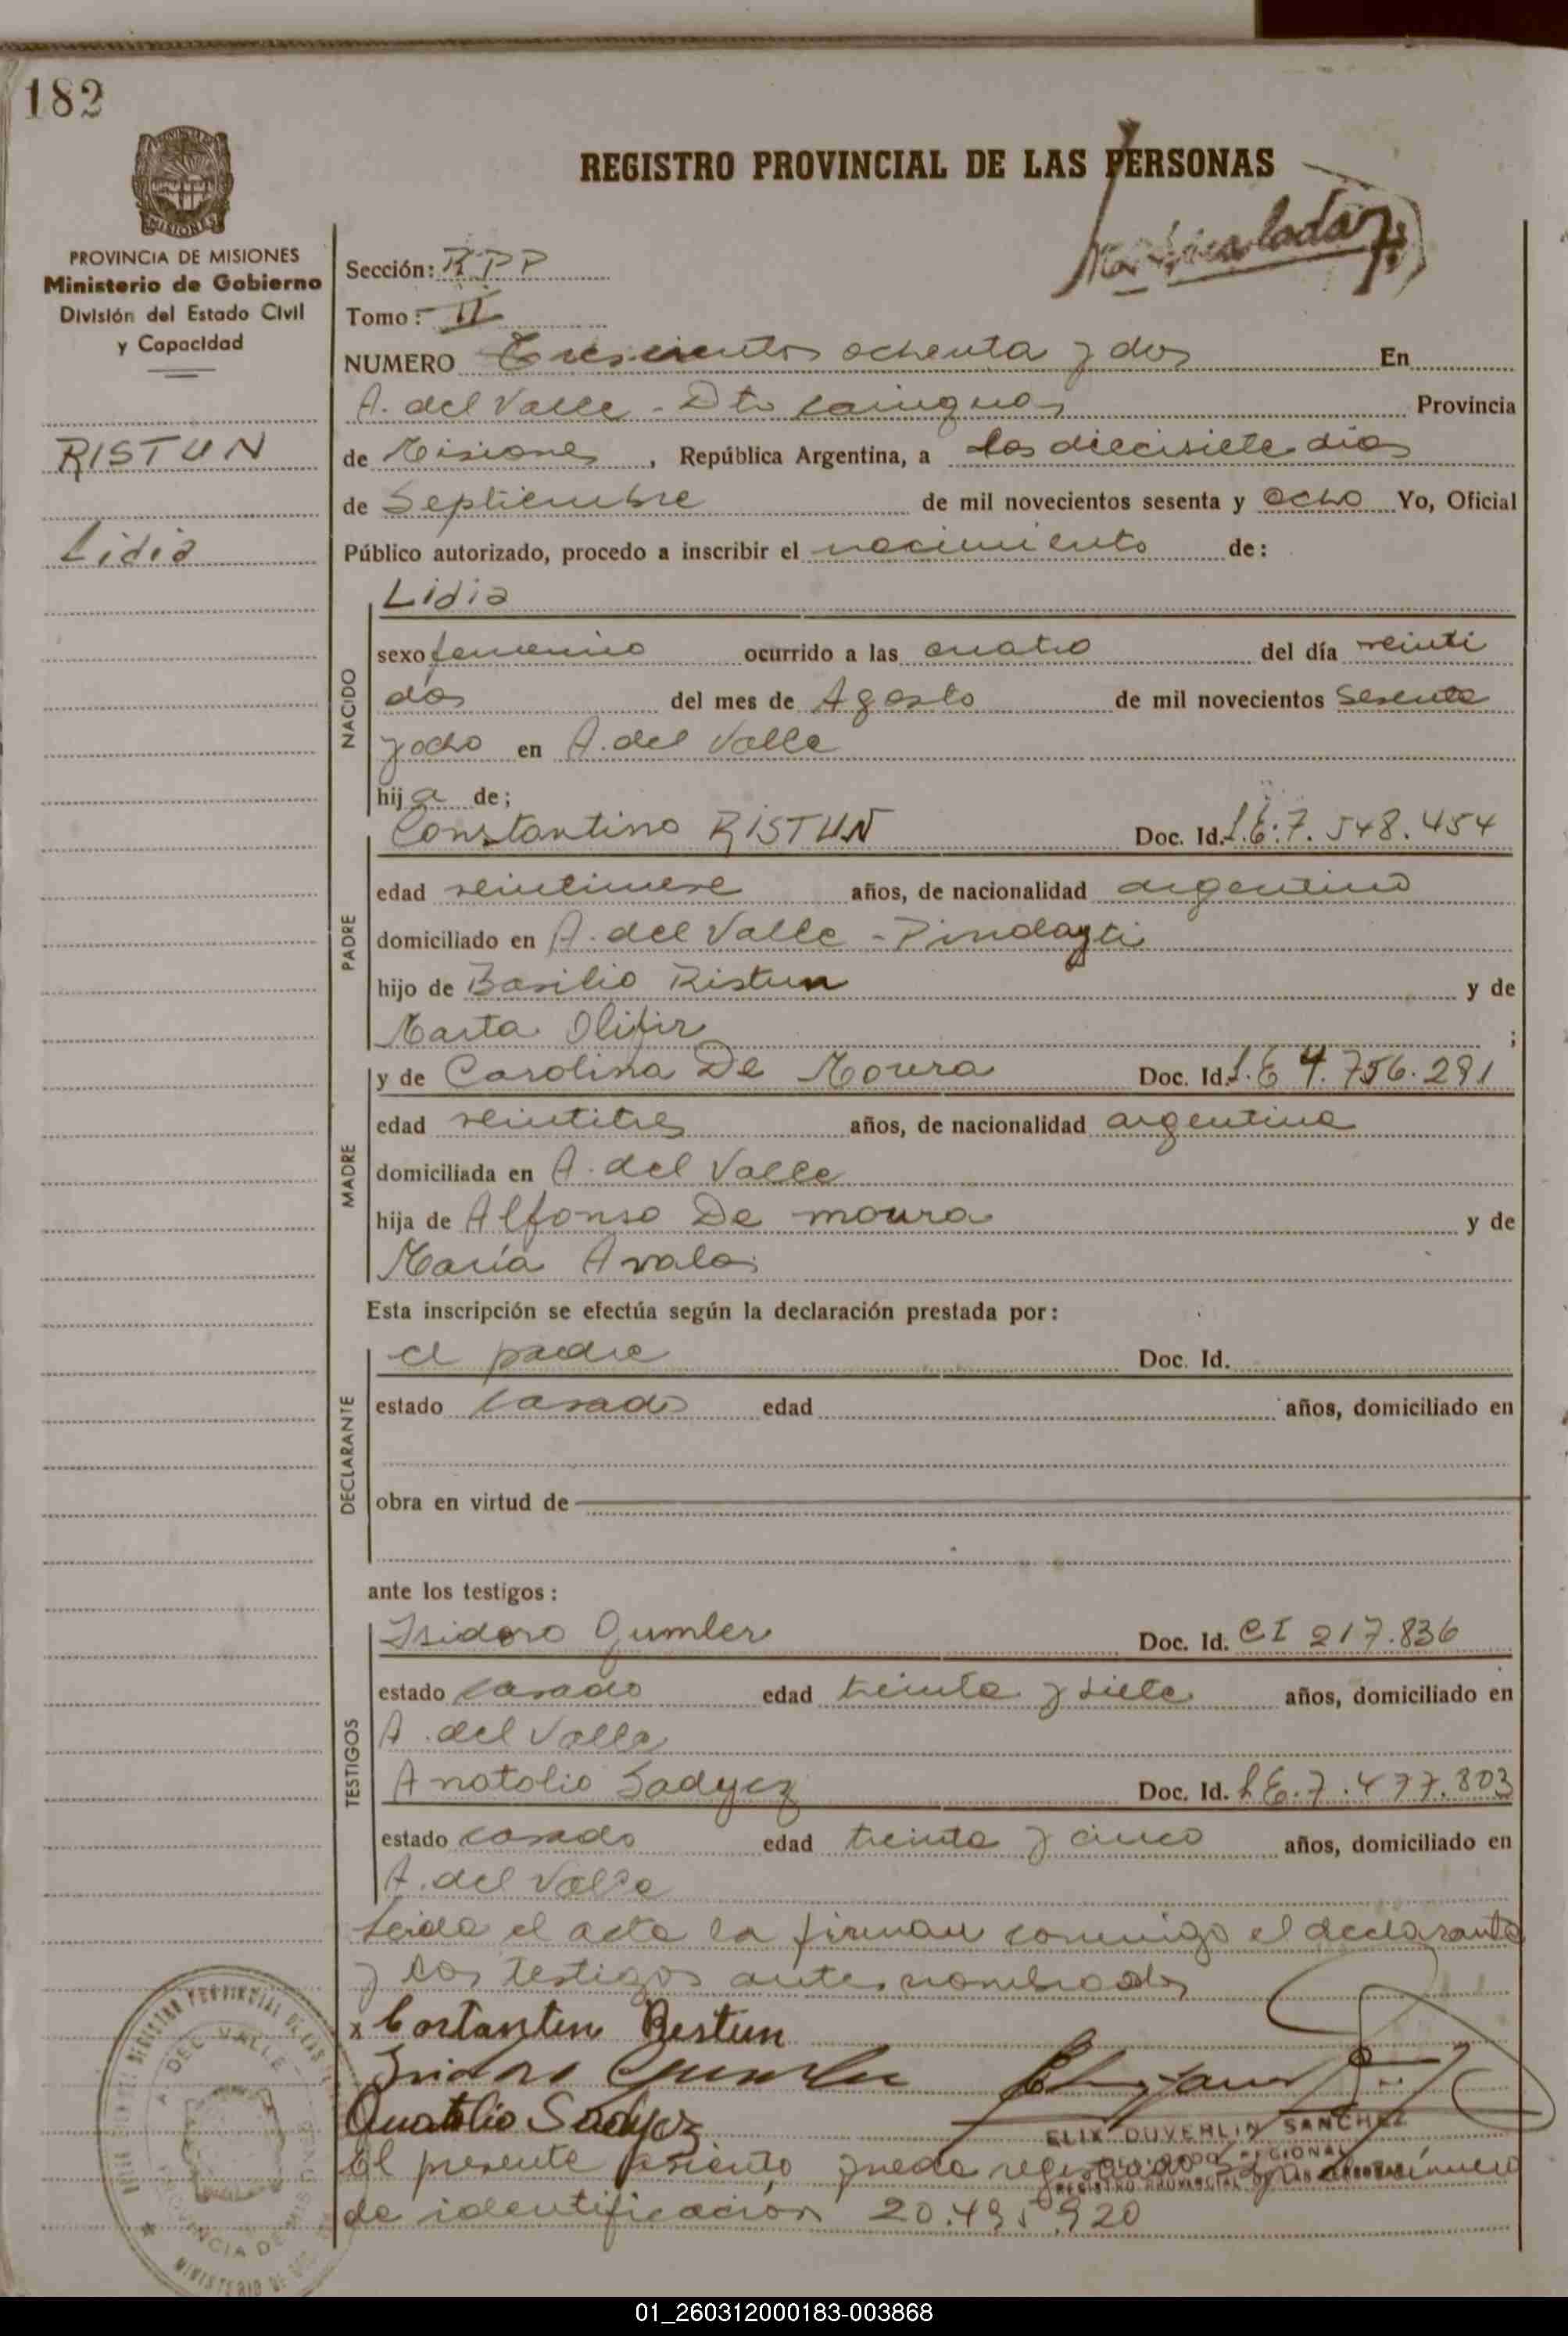 182
REGISTRO PROVINCIAL DE LAS PERSONAS
Matriculada
MISIONES
PROVINCIA DE MISIONES
Ministerio de Gobierno
División del Estado Civil
y Capacidad
RISTUN
Lidia
Sección: RPP
Tomo: II
NUMERO Trescientos ochenta y dos En
A. del Valle - Dto Cainguas Provincia
de Misiones, República Argentina, a los diecisiete dias
de Septiembre de mil novecientos sesenta y ocho Yo, Oficial
Público autorizado, procedo a inscribir el nacimiento de:
NACIDO
Lidia
sexo femenino ocurrido a las cuatro del día veinti
dos del mes de Agosto de mil novecientos sesenta
y ocho en A. del Valle
hija de;
PADRE
Constantino RISTUN Doc. Id. L.E. 7.548.454
edad veintinueve años, de nacionalidad argentino
domiciliado en A. del Valle - Pindayti
hijo de Basilio Ristun y de
Marta Olifir ;
MADRE
y de Carolina De Moura Doc. Id. L.E 4.756.281
edad veintitres años, de nacionalidad argentina
domiciliada en A. del Valle
hija de Alfonso De moura y de
María Avalos
Esta inscripción se efectúa según la declaración prestada por:
DECLARANTE
el padre Doc. Id.
estado casado edad años, domiciliado en
obra en virtud de
ante los testigos:
TESTIGOS
Isidoro Gumler Doc. Id. CI 217.836
estado casado edad treinta y siete años, domiciliado en
A. del Valle
Anatolio Sadyez Doc. Id. L.E. 7.477.803
estado casado edad treinta y cinco años, domiciliado en
A. del Valle
Leida el acta la firman conmigo el declarante
y los testigos antes nombrados
x Costantin Restun
Isidoro Gumler
Anatolio Sadyez
ELIX DUVERLIN SANCHEZ
REGIONAL
REGISTRO PROVINCIAL DE LAS PERSONAS
El presente asiento queda registrado número
de identificación 20.495.920
REGISTRO PROVINCIAL DE LAS
A DEL VALLE
PROVINCIA DE MISIONES
MINISTERIO DE
01_260312000183-003868